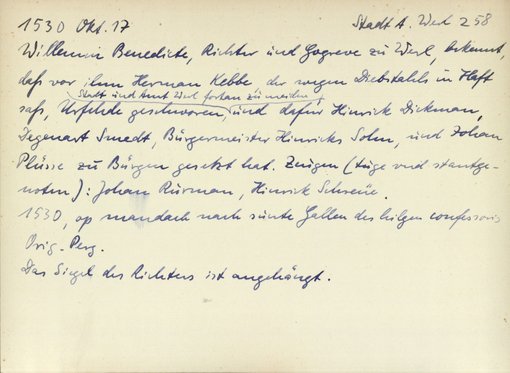 1530 Okt. 17 Stadt A. Werl 258
Willemin Benedicte, Richter und Gogreve zu Werl, bekennt,
daß vor ihm Herman Kebbe, der wegen Diebstahls in Haft
Stadt und Amt Werl fortan zu meiden
saß, Urfehde geschworen, und dafür Hinrick Dickman,
Degenart Smedt, Bürgermeister Hinricks Sohn, und Johan
Plüsse zu Bürgen gesetzt hat. Zeugen (tüge vnd stantge-
noten): Johan Rürman, Hinrick Schreüe.
1530, op mandach nach sünte Gallen des hilgen confessoris
Orig. Perg.
Das Siegel des Richters ist angehängt.